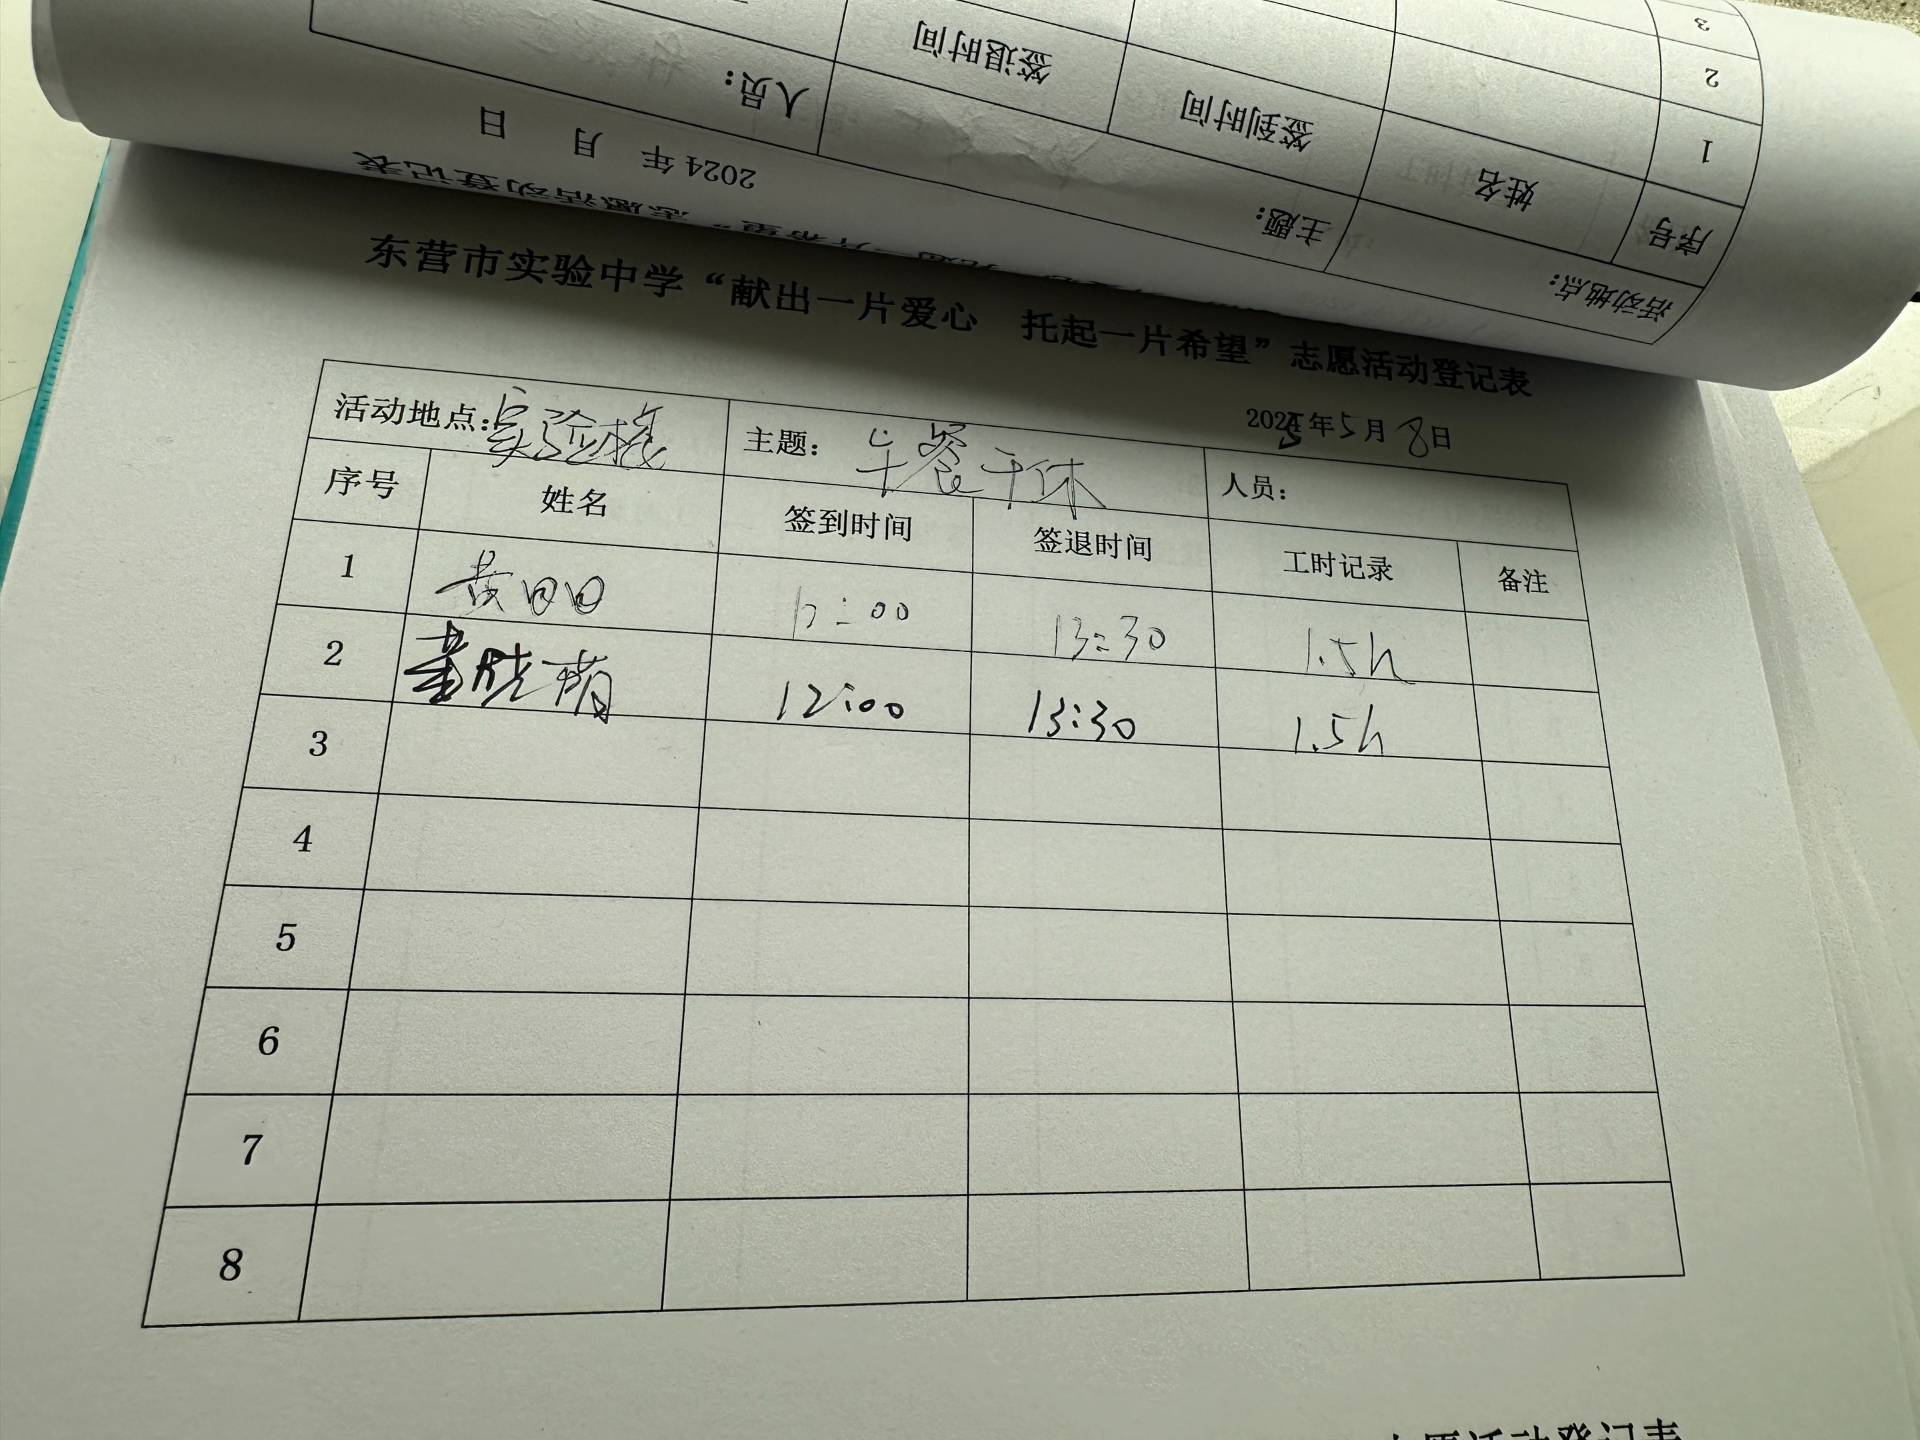 3
2
1
签退时间
签到时间
姓名
序号
人员：
主题：
活动地点：
2024 年 月 日
东营市实验中学“献出一片爱心 托起一片希望”志愿活动登记表
2025年5月8日
活动地点：实验楼 主题：午餐午休 人员：
序号 姓名 签到时间 签退时间 工时记录 备注
1 黄 12:00 13:30 1.5h
2 董晓萌 12:00 13:30 1.5h
3
4
5
6
7
8
志愿活动登记表